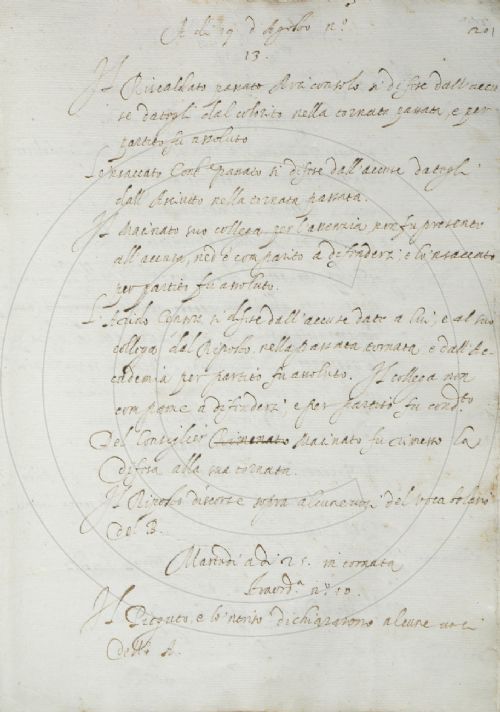 A dì 19 d'Agosto n.º
13.
Il Riscaldato passato Arciconsolo si difese dall'accuse
dategli dal colorito nella tornata passata, e per
partito fu assoluto
L'Insaccato Cons.e passato si difese dall'accuse dategli
dall' nella tornata passata.
Il Macinato suo collega per l'assenzia non fu presente
all'accusa, ned è comparito a difenders; e lo'nsaccato
per partito fu assoluto.
L' si difese dall'accuse date a lui e al suo
collega dal nella passata tornata e dall'Ac-
cademia per partito fu assoluto. Il collega non
compame a difendersi, e per partito fu cond.to
Del Consiglier Macinato fu rimesso la
difesa alla sua tornata.
Il discorse sopra alcune voci del vocabolario
del B.
Martedì adì 25. in tornata
straord.a n.º 10.
Il e lo'nferito dichiararono alcune voci
dell' A.